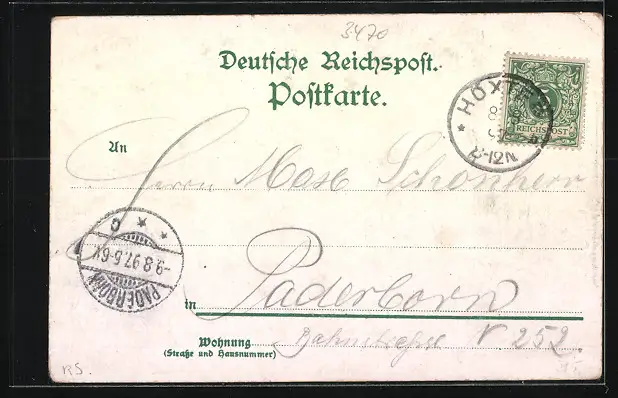 3470
Deutsche Reichspost.
Postkarte.
HÖXTER
8 8
97
8-12N
5
REICHSPOST
An
Herrn Max Schönherr
C
-9.8.97.5-6V.
PADERBORN
in Paderborn
Wohnung Bahnstrasse N 252.
(Straße und Hausnummer)
RS.